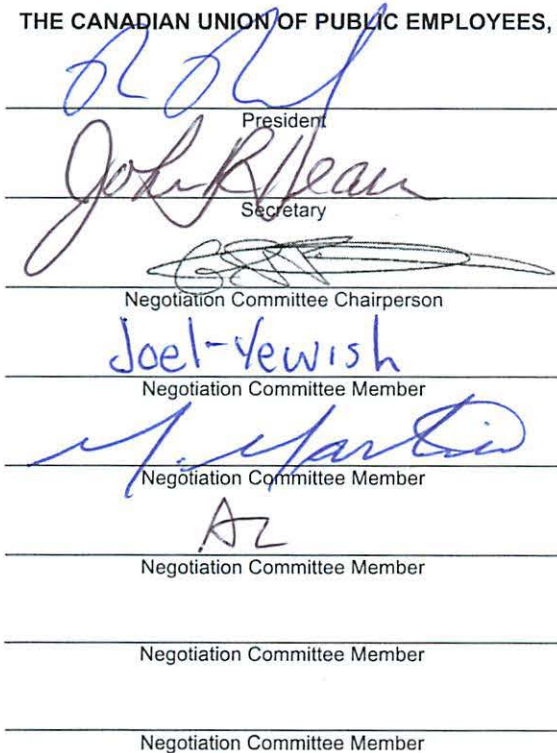 THE CANADIAN UNION OF PUBLIC EMPLOYEES,
President
John R Dean
Secretary
Negotiation Committee Chairperson
Joel-Yewish
Negotiation Committee Member
M. Martin
Negotiation Committee Member
AL
Negotiation Committee Member
Negotiation Committee Member
Negotiation Committee Member